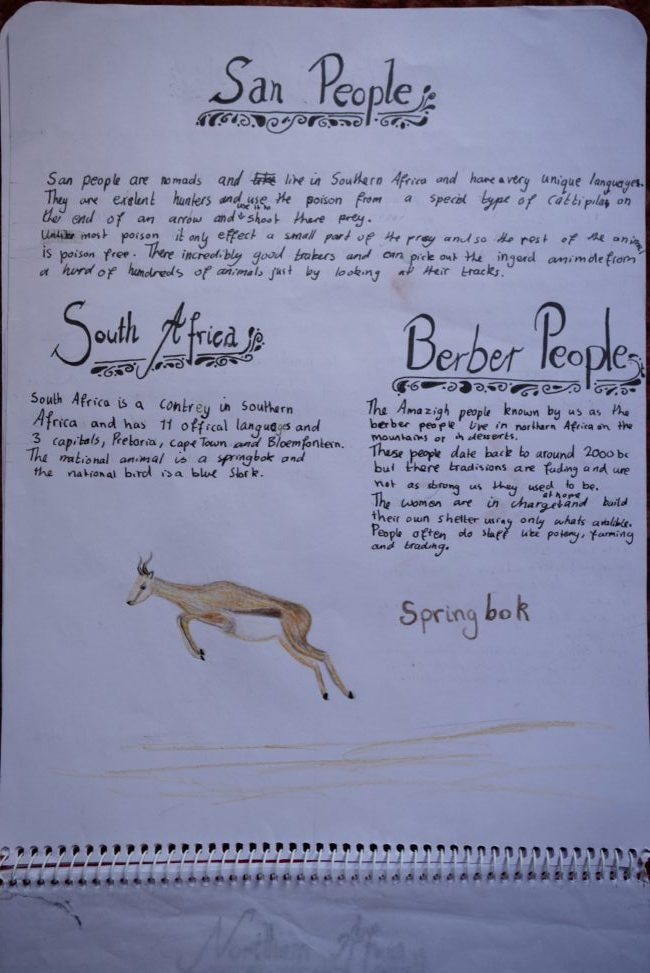 San People
San people are nomads and live in Southern Africa and have a very unique languages.
They are exelent hunters and use the poison from a special type of cattipilar on
the end of an arrow and use it to shoot there prey.
Unlike most poison it only effect a small part of the prey and so the rest of the animal
is poison free. There incredibly good trakers and can pick out the ingerd animle from
a hurd of hundreds of animals just by looking at their tracks.
South Africa
South Africa is a contrey in southern
Africa and has 11 offical languages and
3 capitals, Pretoria, Cape Town and Bloemfontern.
The national animal is a springbok and
the national bird is a blue Stork.
Berber People
The Amazigh people known by us as the
berber people live in northern Africa on the
mountains or in desserts.
These people date back to around 2000 bc
but there tradisions are fading and are
not as strong us they used to be.
The women are in charge at home and build
their own shelter using only whats avalible.
People often do stuff like potery, farming
and trading.
Springbok
Northern Africa